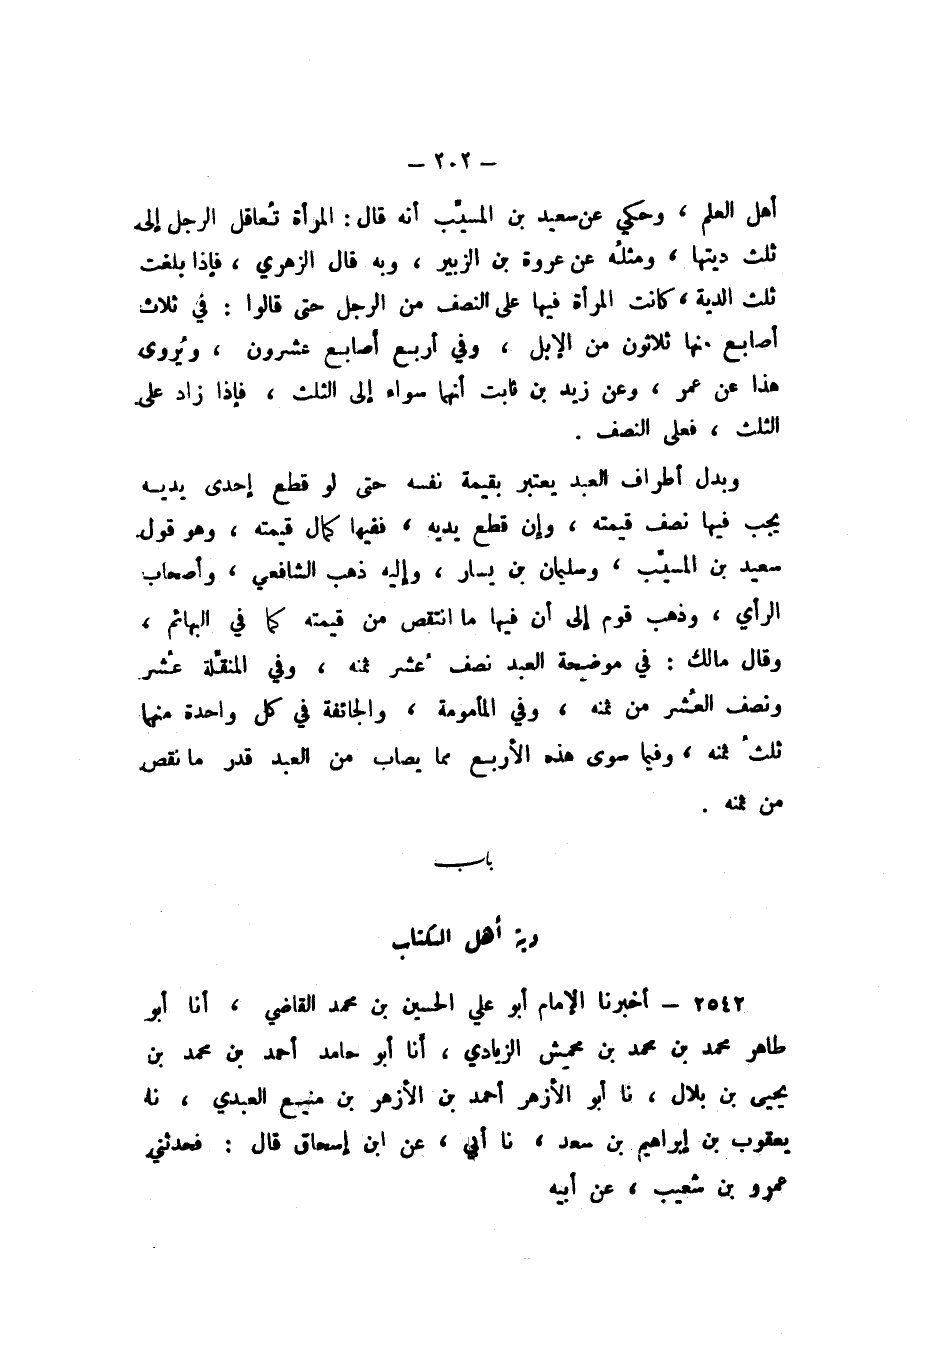 – ٢٠٢ –
أهل العلم ، وحكي عن سعيد بن المسيَّب أنه قال : المرأة تُعاقل الرجل إلى
ثلث ديتها ، ومثلُه عن عروة بن الزبير ، وبه قال الزهري ، فإذا بلغت
ثلث الدية ، كانت المرأة فيها على النصف من الرجل حتى قالوا : في ثلاث
أصابع منها ثلاثون من الإبل ، وفي أربع أصابع عشرون ، ويُروى
هذا عن عمر ، وعن زيد بن ثابت أنها سواء إلى الثلث ، فإذا زاد على
الثلث ، فعلى النصف .
وبدل أطراف العبد يعتبر بقيمة نفسه حتى لو قطع إحدى يديه
يجب فيها نصف قيمته ، وإن قطع يديه ، ففيها كمال قيمته ، وهو قول
سعيد بن المسيَّب ، وسليمان بن يسار ، وإليه ذهب الشافعي ، وأصحاب
الرأي ، وذهب قوم إلى أن فيها ما انتقص من قيمته كما في البهائم ،
وقال مالك : في موضحة العبد نصف عُشر ثمنه ، وفي المنقَّلة عُشر
ونصف العُشر من ثمنه ، وفي المأمومة ، والجائفة في كل واحدة منها
ثلثُ ثمنه ، وفيما سوى هذه الأربع مما يصاب من العبد قدر ما نقص
من ثمنه .
باب
دية أهل الكتاب
٢٥٤٢ – أخبرنا الإمام أبو علي الحسين بن محمد القاضي ، أنا أبو
طاهر محمد بن محمد بن محمش الزيادي ، أنا أبو حامد أحمد بن محمد بن
يحيى بن بلال ، نا أبو الأزهر أحمد بن الأزهر بن منيع العبدي ، نا
يعقوب بن إبراهيم بن سعد ، نا أبي ، عن ابن إسحاق قال : فحدثني
عمرو بن شعيب ، عن أبيه